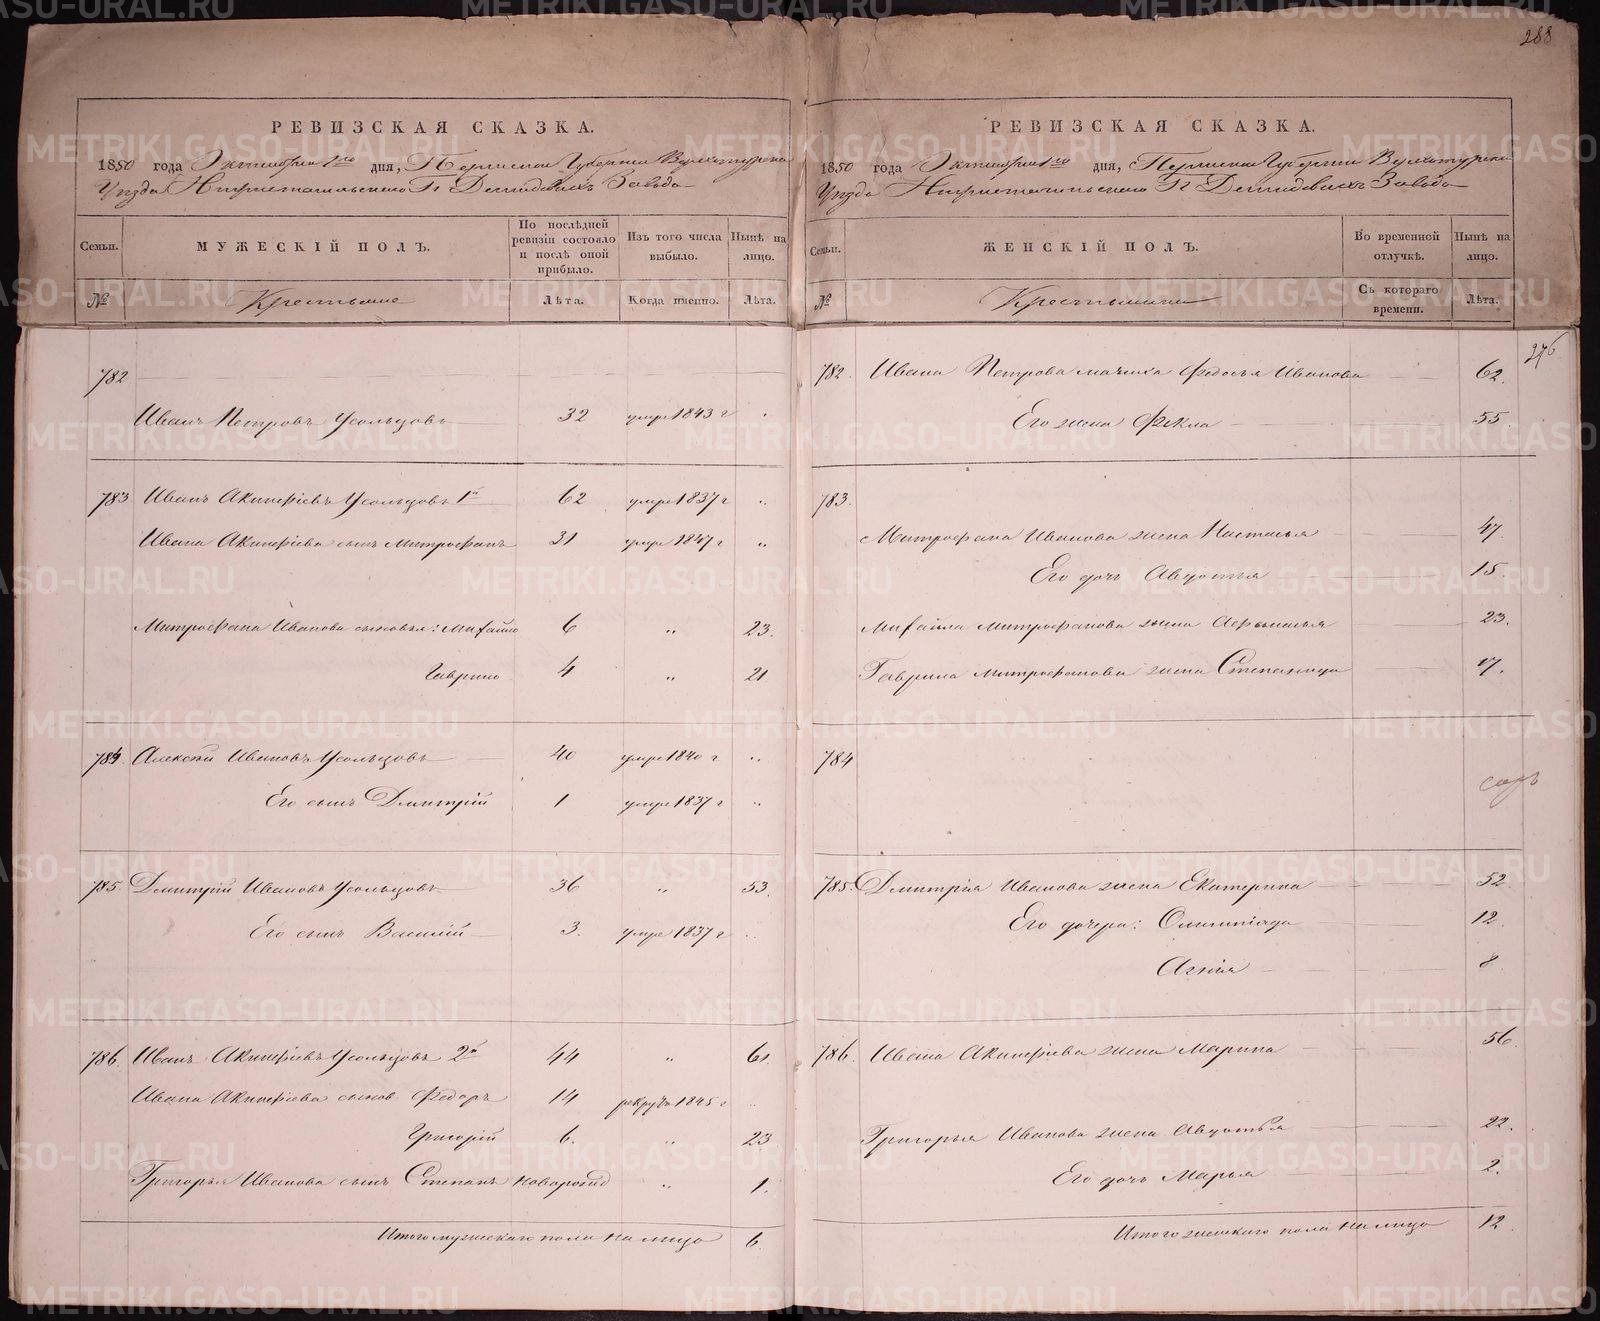 288
РЕВИЗСКАЯ СКАЗКА.
1850 года Октября 1го дня, Пермской Губернии Верхотурскаго
Уезда Нижнетагильскаго Гг Демидовыхъ Завода
Семьи.
МУЖЕСКІЙ ПОЛЪ.
По послѣдней ревизіи состояло и послѣ оной прибыло.
Изъ того числа выбыло.
Нынѣ на лицо.
№
Крестьяне
Лѣта.
Когда именно.
Лѣта.
782
Иванъ Петровъ Усольцовъ 32 умре 1843 г "
783 Иванъ Акинфіевъ Усольцовъ 1й 62 умре 1837 г "
Ивана Акинфіева сынъ Митрофанъ 31 умре 1847 г "
Митрофана Иванова сыновья: Михайло 6 " 23.
Гаврило 4 " 21
784. Алексѣй Ивановъ Усольцовъ 40 умре 1840 г "
Его сынъ Дмитрій 1 умре 1837 г "
785. Дмитрій Ивановъ Усольцовъ 36 " 53.
Его сынъ Василій 3. умре 1837 г "
786. Иванъ Акинфіевъ Усольцовъ 2й 44 " 61.
Ивана Акинфіева сынов. Федоръ 14 рекрут. 1845 г "
Григорій 6. " 23
Григорья Иванова сынъ Степанъ новорожд " 1.
Итого мужескаго пола на лицо 6.
РЕВИЗСКАЯ СКАЗКА.
1850 года Октября 1го дня, Пермской Губерніи Верхотурскаго
Уезда Нижнетагильскаго Гг Демидовыхъ Завода
Семьи.
ЖЕНСКІЙ ПОЛЪ.
Во временной отлучкѣ.
Нынѣ на лицо.
№
Крестьянки
Съ котораго времени.
Лѣта.
276.
782. Ивана Петрова мачиха Федосья Иванова 62.
Его жена Фекла 55.
783.
Митрофана Иванова жена Настасья 47.
Его дочь Авдотья 15.
Михайла Митрофанова жена Афонасья 23.
Гаврила Митрофанова жена Степанида 17.
784
785. Дмитрія Иванова жена Екатерина 52.
Его дочери: Олимпіада 12.
Агнія 8
786. Ивана Акинфіева жена Марина 56.
Григорья Иванова жена Авдотья 22.
Его дочь Марья 2.
Итого женскаго пола на лицо 12.
METRIKI.GASO-URAL.RU